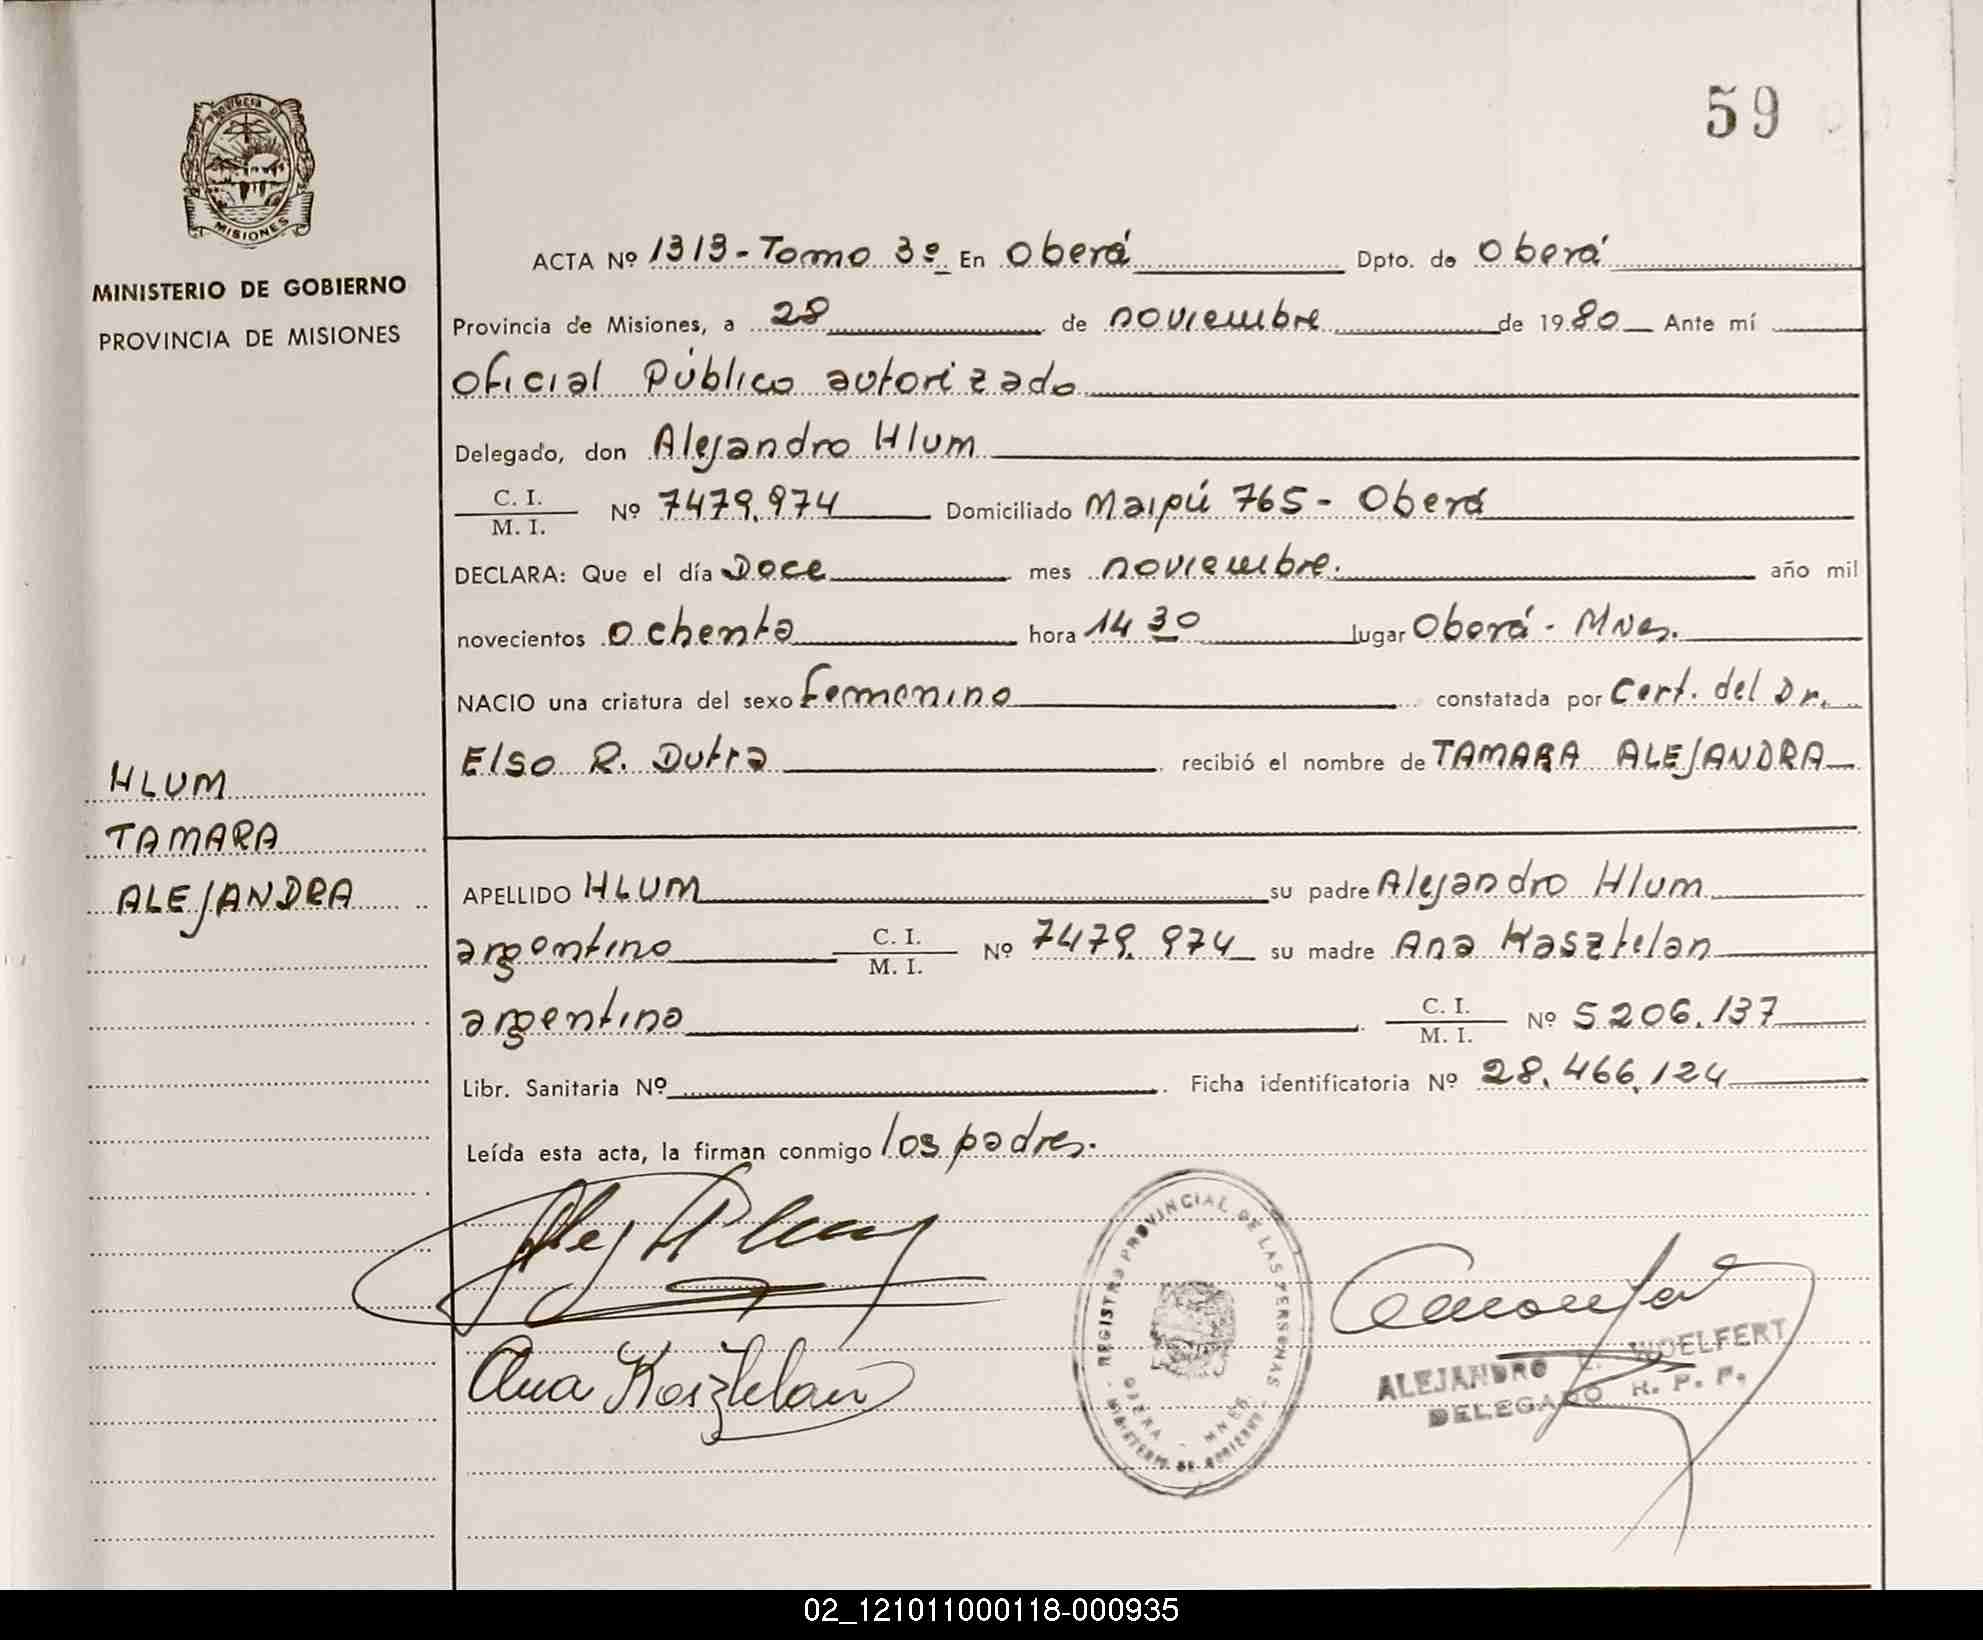 59
PROVINCIA DE
MISIONES
MINISTERIO DE GOBIERNO
PROVINCIA DE MISIONES
ACTA Nº 1313-Tomo 3º En Oberá Dpto. de Oberá
Provincia de Misiones, a 28 de noviembre de 1980 Ante mí
Oficial Público autorizado
Delegado, don Alejandro Hlum
C. I.
M. I. Nº 7479.974 Domiciliado Maipú 765 - Oberá
DECLARA: Que el día Doce mes noviembre. año mil
novecientos ochenta hora 14 30 lugar Oberá - Mnes.
NACIO una criatura del sexo femenino constatada por Cert. del Dr.
Elso R. Dutra recibió el nombre de TAMARA ALEJANDRA
HLUM
TAMARA
ALEJANDRA
APELLIDO HLUM su padre Alejandro Hlum
argentino C. I.
M. I. Nº 7479.974 su madre Ana Kasztelan
argentina C. I.
M. I. Nº 5.206.137
Libr. Sanitaria Nº Ficha identificatoria Nº 28.466.124
Leída esta acta, la firman conmigo los padres.
Alej Hlum
Ana Kasztelan
REGISTRO PROVINCIAL DE LAS PERSONAS
OBERA - MNES.
MINISTERIO DE GOBIERNO
ALEJANDRO WOELFERT
DELEGADO R. P. P.
02_121011000118-000935